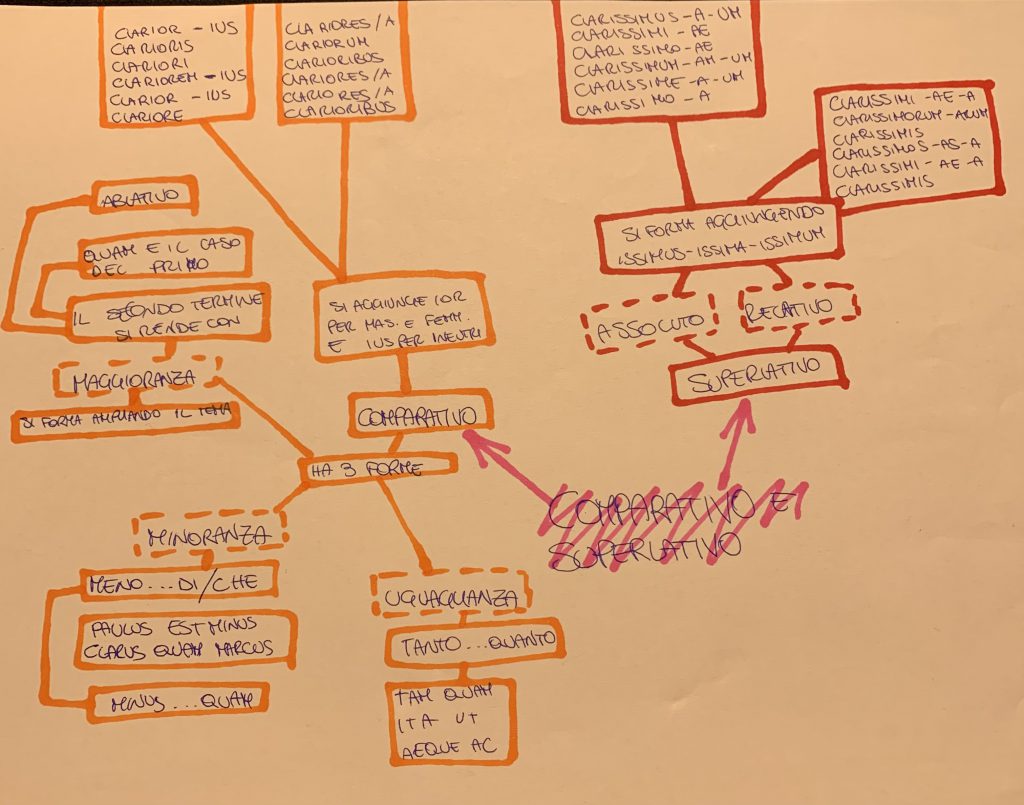 CLARIOR - IUS
CLARIORIS
CLARIORI
CLARIOREM - IUS
CLARIOR - IUS
CLARIORE
CLARIORES/A
CLARIORUM
CLARIORIBUS
CLARIORES/A
CLARIORES/A
CLARIORIBUS
CLARISSIMUS - A - UM
CLARISSIMI - AE
CLARISSIMO - AE
CLARISSIMUM - AM - UM
CLARISSIME - A - UM
CLARISSIMO - A
CLARISSIMI - AE - A
CLARISSIMORUM - ARUM
CLARISSIMIS
CLARISSIMOS - AS - A
CLARISSIMI - AE - A
CLARISSIMIS
ABLATIVO
QUAM E IL CASO
DEL PRIMO
IL SECONDO TERMINE
SI RENDE CON
MAGGIORANZA
SI FORMA AMPLIANDO IL TEMA
SI AGGIUNGE IOR
PER MAS. E FEMM.
E IUS PER I NEUTRI
COMPARATIVO
HA 3 FORME
SI FORMA AGGIUNGENDO
ISSIMUS - ISSIMA - ISSIMUM
ASSOLUTO
RELATIVO
SUPERLATIVO
COMPARATIVO E
SUPERLATIVO
MINORANZA
MENO ... DI/CHE
PAULUS EST MINUS
CLARUS QUAM MARCUS
MINUS ... QUAM
UGUAGLIANZA
TANTO ... QUANTO
TAM QUAM
ITA UT
AEQUE AC